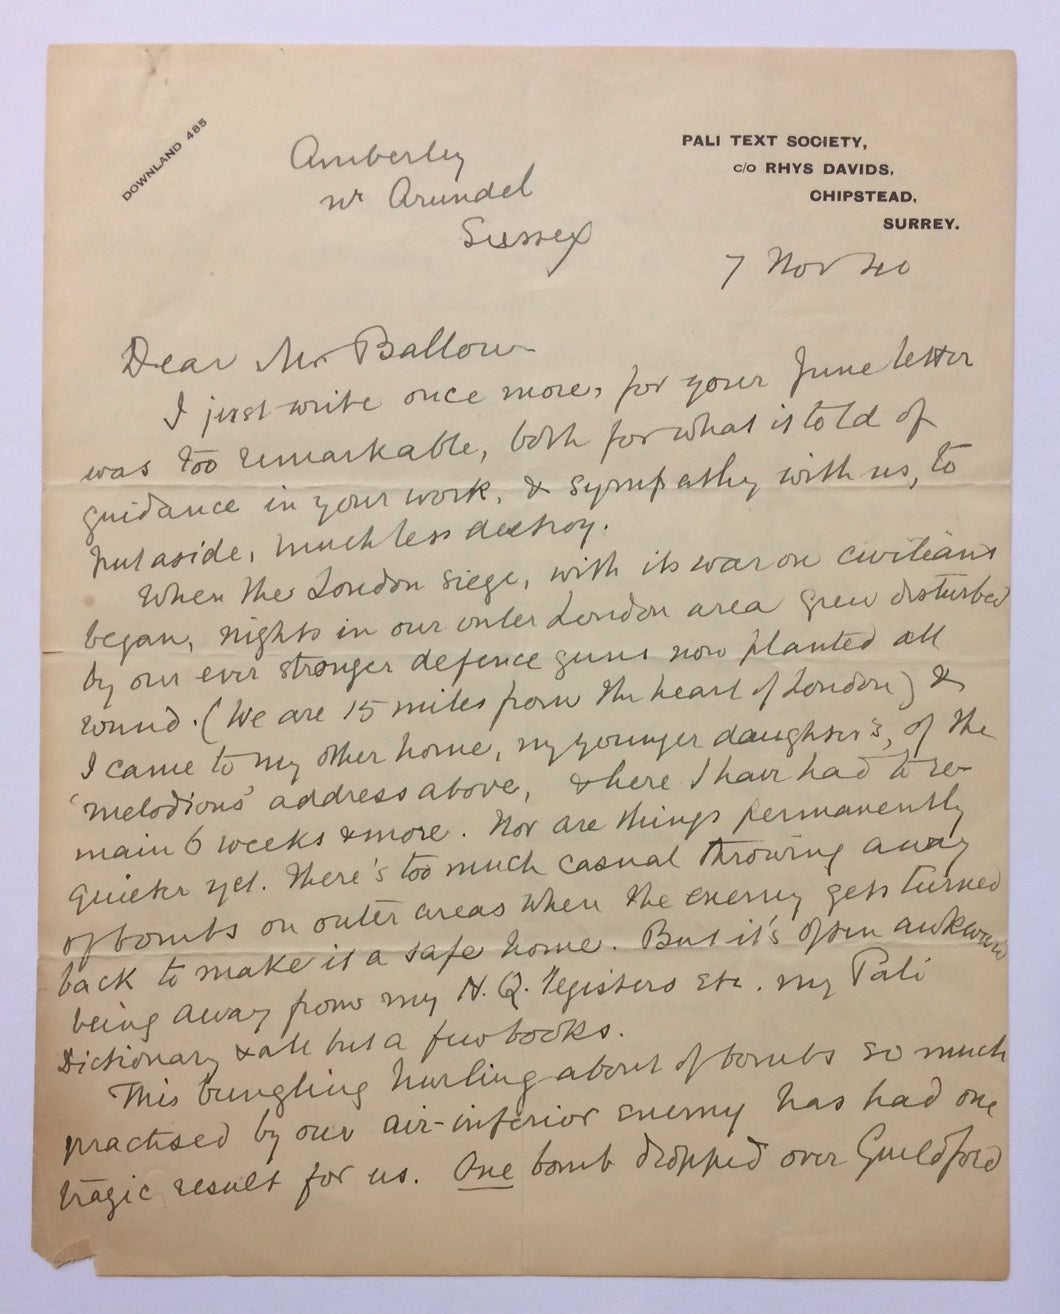 DOWNLAND 485
PALI TEXT SOCIETY,
c/o RHYS DAVIDS,
CHIPSTEAD,
SURREY.
Amberley
nr Arundel
Sussex
7 Nov 40
Dear Mr Ballow
I just write once more, for your June letter
was too remarkable, both for what is told of
guidance in your work, & sympathy with us, to
put aside, much less destroy.
When the London siege, with its war on civilians
began, nights in our outer London area grew disturbed
by our ever stronger defence guns now planted all
round. (We are 15 miles from the heart of London) &
I came to my other home, my younger daughter's, of the
'melodious' address above, & here I have had to re-
main 6 weeks & more. Nor are things permanently
quieter yet. There's too much casual throwing away
of bombs on outer areas when the enemy gets turned
back to make it a safe home. But it's often awkward
being away from my H.Q. registers etc. my Pali
Dictionary & all but a few books.
This bungling hurling about of bombs so much
practised by our air-inferior enemy has had one
tragic result for us. One bomb dropped over Guildford